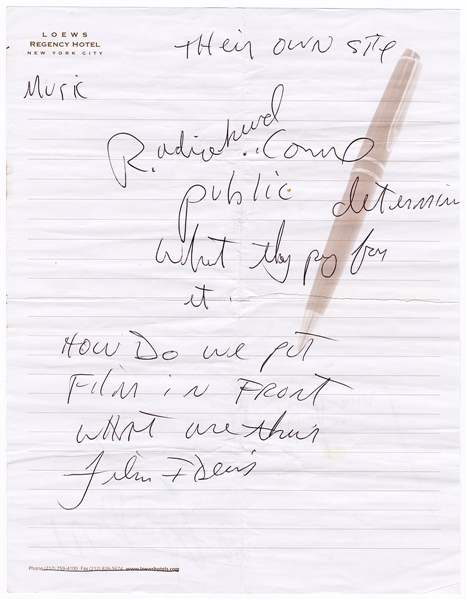 LOEWS
REGENCY HOTEL
NEW YORK CITY
THEIR OWN SITE
MUSIC
Radiohead.Com
public determin
what they pay for
it.
HOW DO we put
FILM in FRONT
WHAT are their
film IDeas
Phone (212) 759-4100 Fax (212) 826-5674 www.loewshotels.com